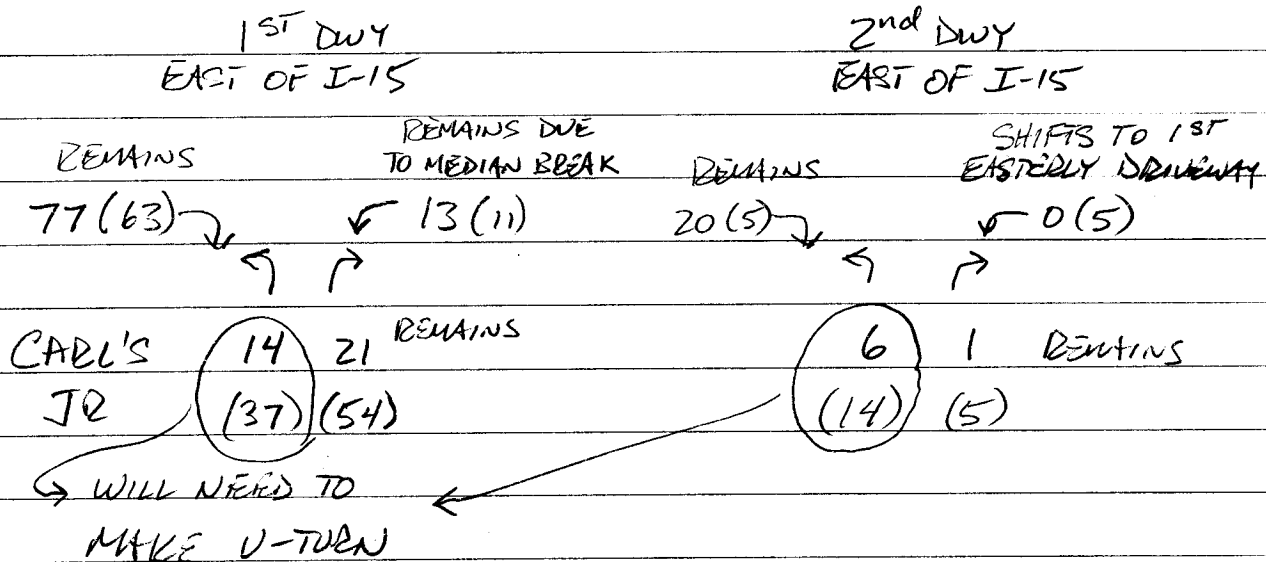 1ST DWY 2nd DWY
EAST OF I-15 EAST OF I-15
REMAINS REMAINS DUE TO MEDIAN BREAK REMAINS SHIFTS TO 1ST EASTERLY DRIVEWAY
77(63) 13(11) 20(5) 0(5)
CARL'S 14 21 REMAINS 6 1 REMAINS
JR (37) (54) (14) (5)
WILL NEED TO
MAKE U-TURN